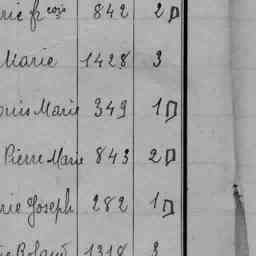 rie frçois 842 2 D
Marie 1428 3
ouis Marie 349 1 D
Pierre Marie 843 2 D
rie Joseph 282 1 D
Roland 1318 3